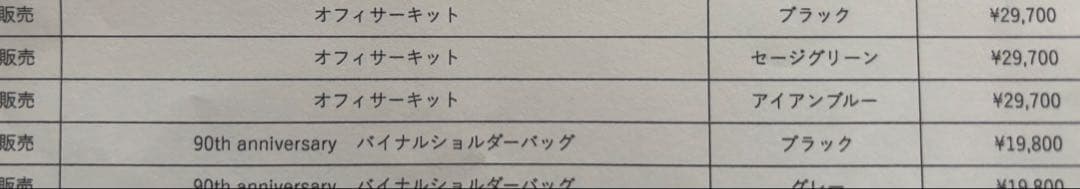 販売 オフィサーキット ブラック ¥29,700
販売 オフィサーキット セージグリーン ¥29,700
販売 オフィサーキット アイアンブルー ¥29,700
販売 90th anniversary バイナルショルダーバッグ ブラック ¥19,800
販売 90th anniversary バイナルショルダーバッグ グレー ¥19,800